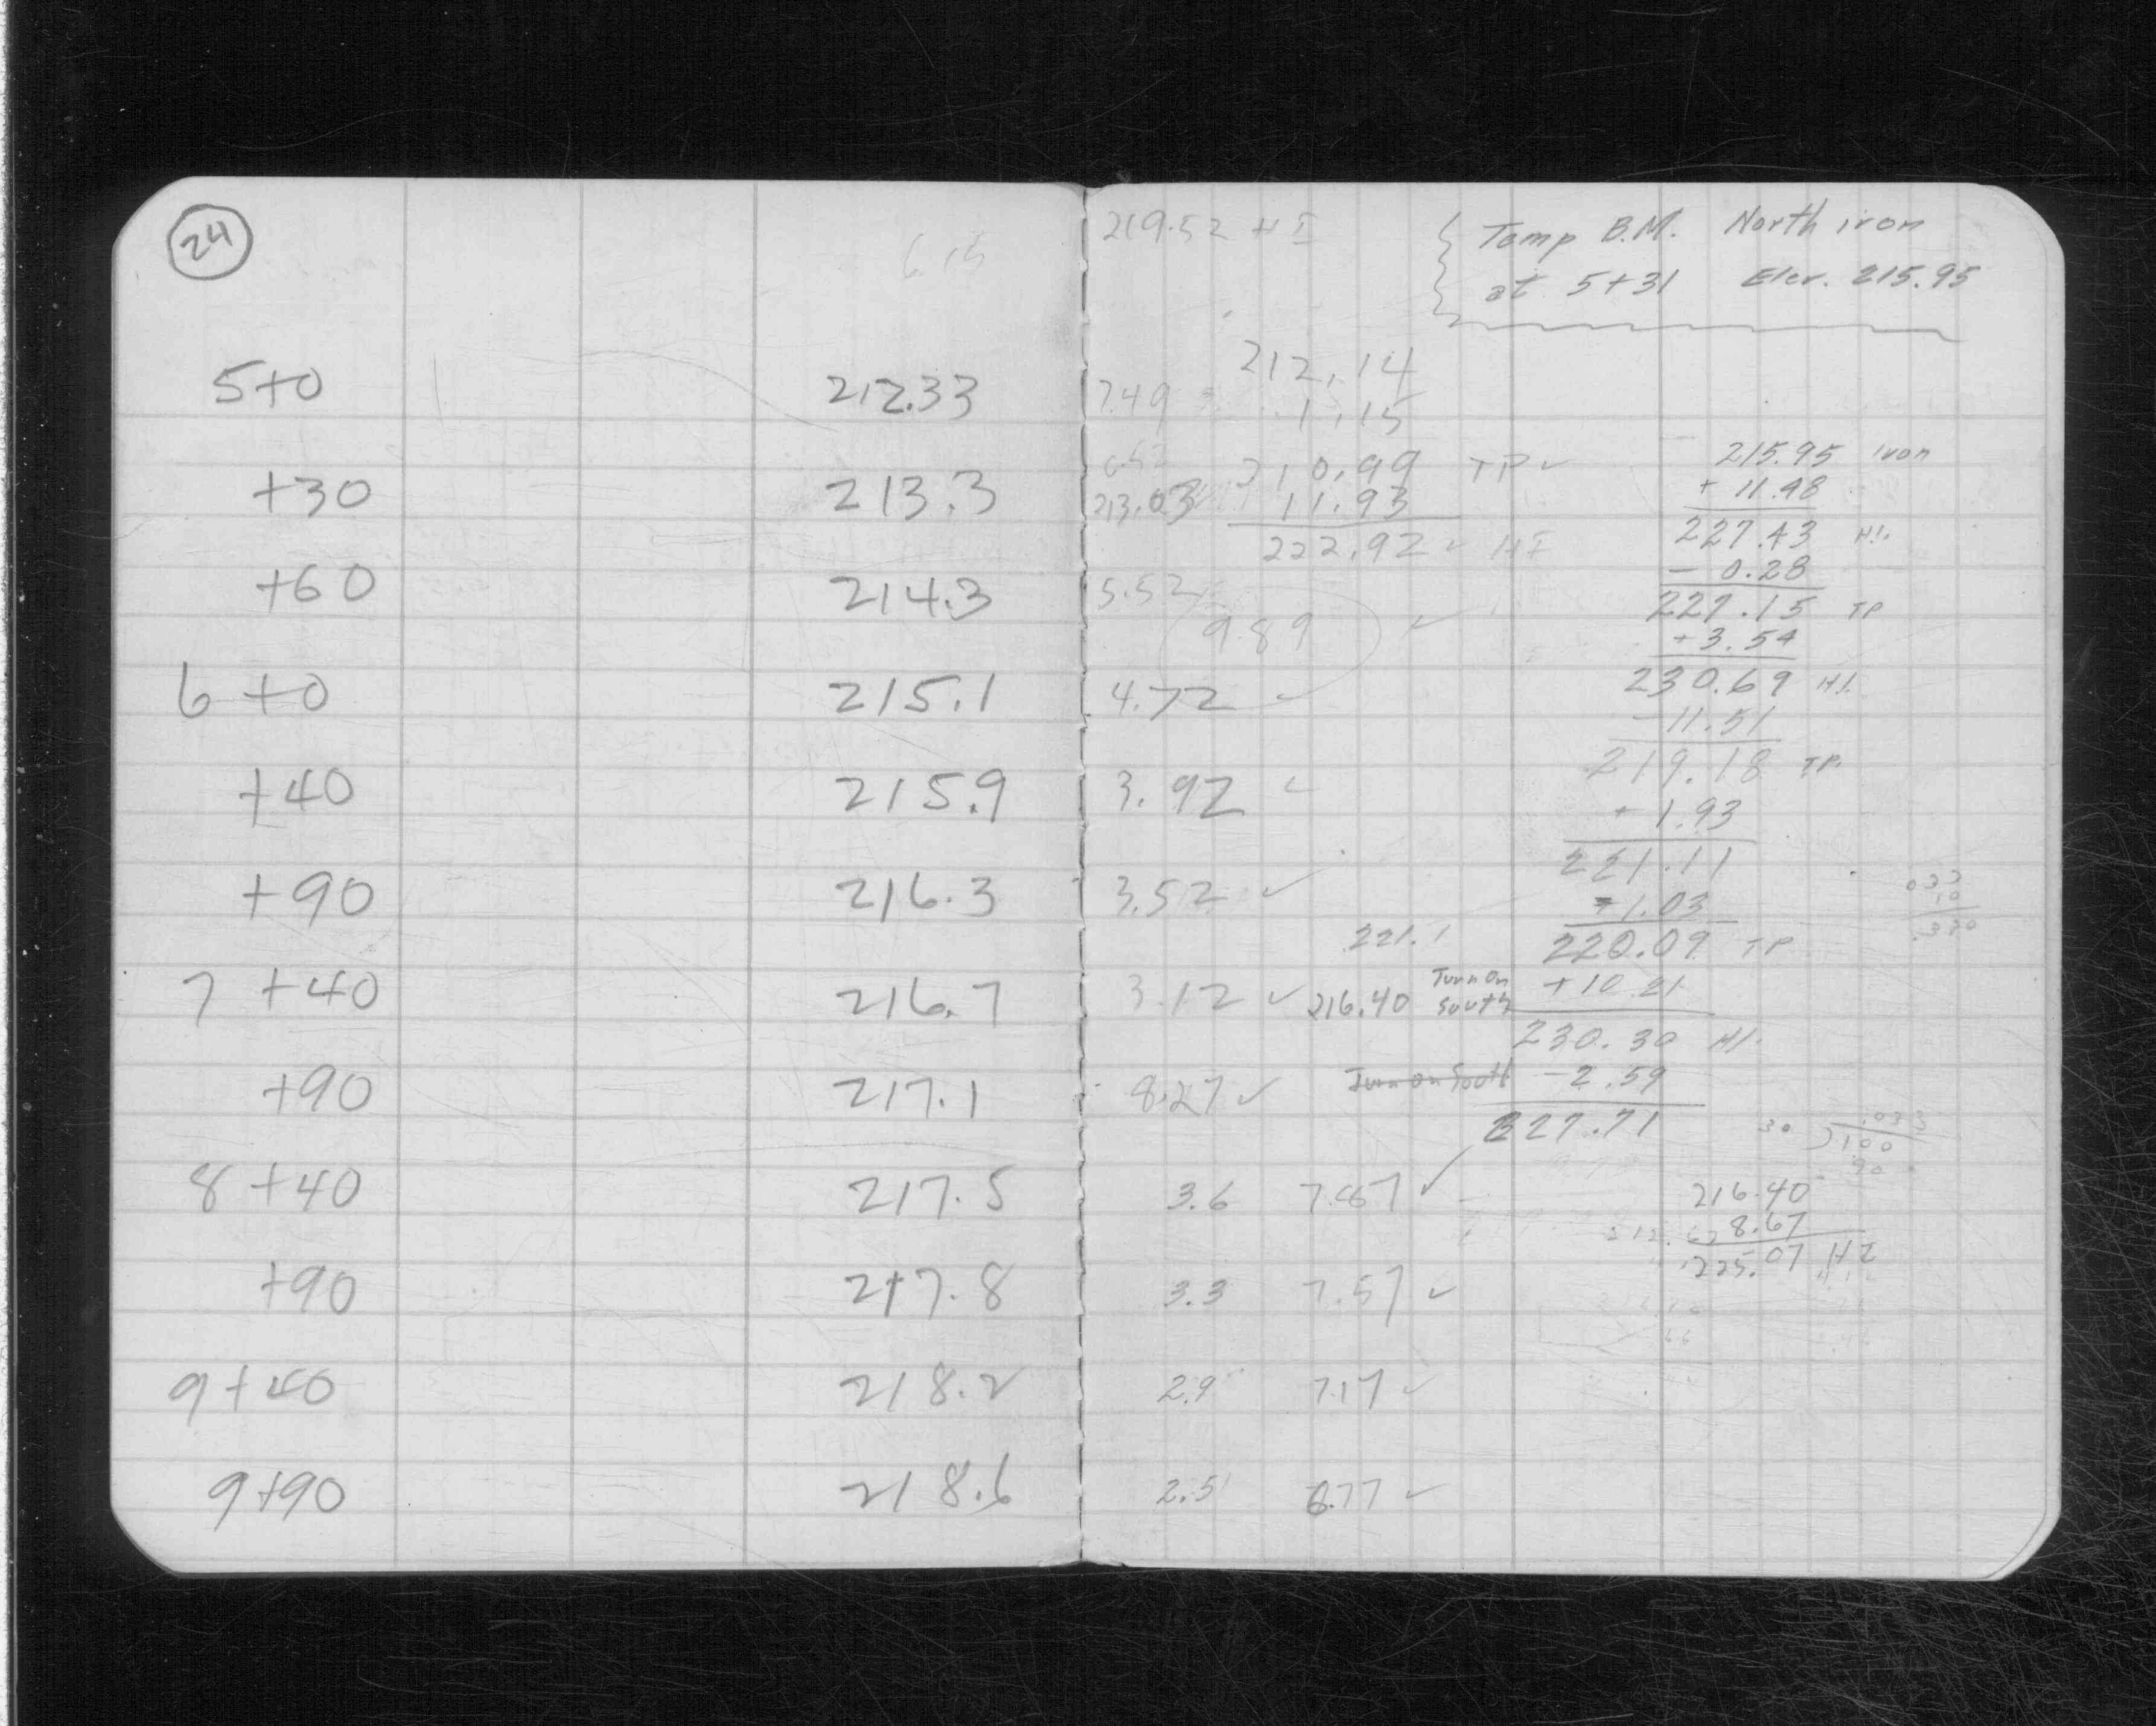 24
5+0 212.33
+30 213.3
+60 214.3
6 +0 215.1
+40 215.9
+90 216.3
7 +40 216.7
+90 217.1
8 +40 217.5
+90 217.8
9+40 218.2
9+90 218.6
219.52 HI
Temp B.M. North iron
at 5+31 Elev. 215.95
212.14
7.49 1.15
210.99 TP ✓
213.03 11.93
222.92 ✓ HI
5.52
9.89 ✓
4.72 ✓
3.92 ✓
3.52 ✓
221.1
3.12 ✓ 216.40 Turn On
South
8.27 ✓ Turn on South
3.6 7.67 ✓
3.3 7.57 ✓
2.9 7.17 ✓
2.5 6.77 ✓
215.95 iron
+ 11.48
227.43 HI.
- 0.28
227.15 TP
+ 3.54
230.69 HI.
- 11.51
219.18 TP.
+ 1.93
221.11
- 1.03
220.09 TP
+ 10.21
230.30 HI.
- 2.59
227.71
033
10
.330
.033
30 ) 100
90
216.40
8.67
225.07 HI